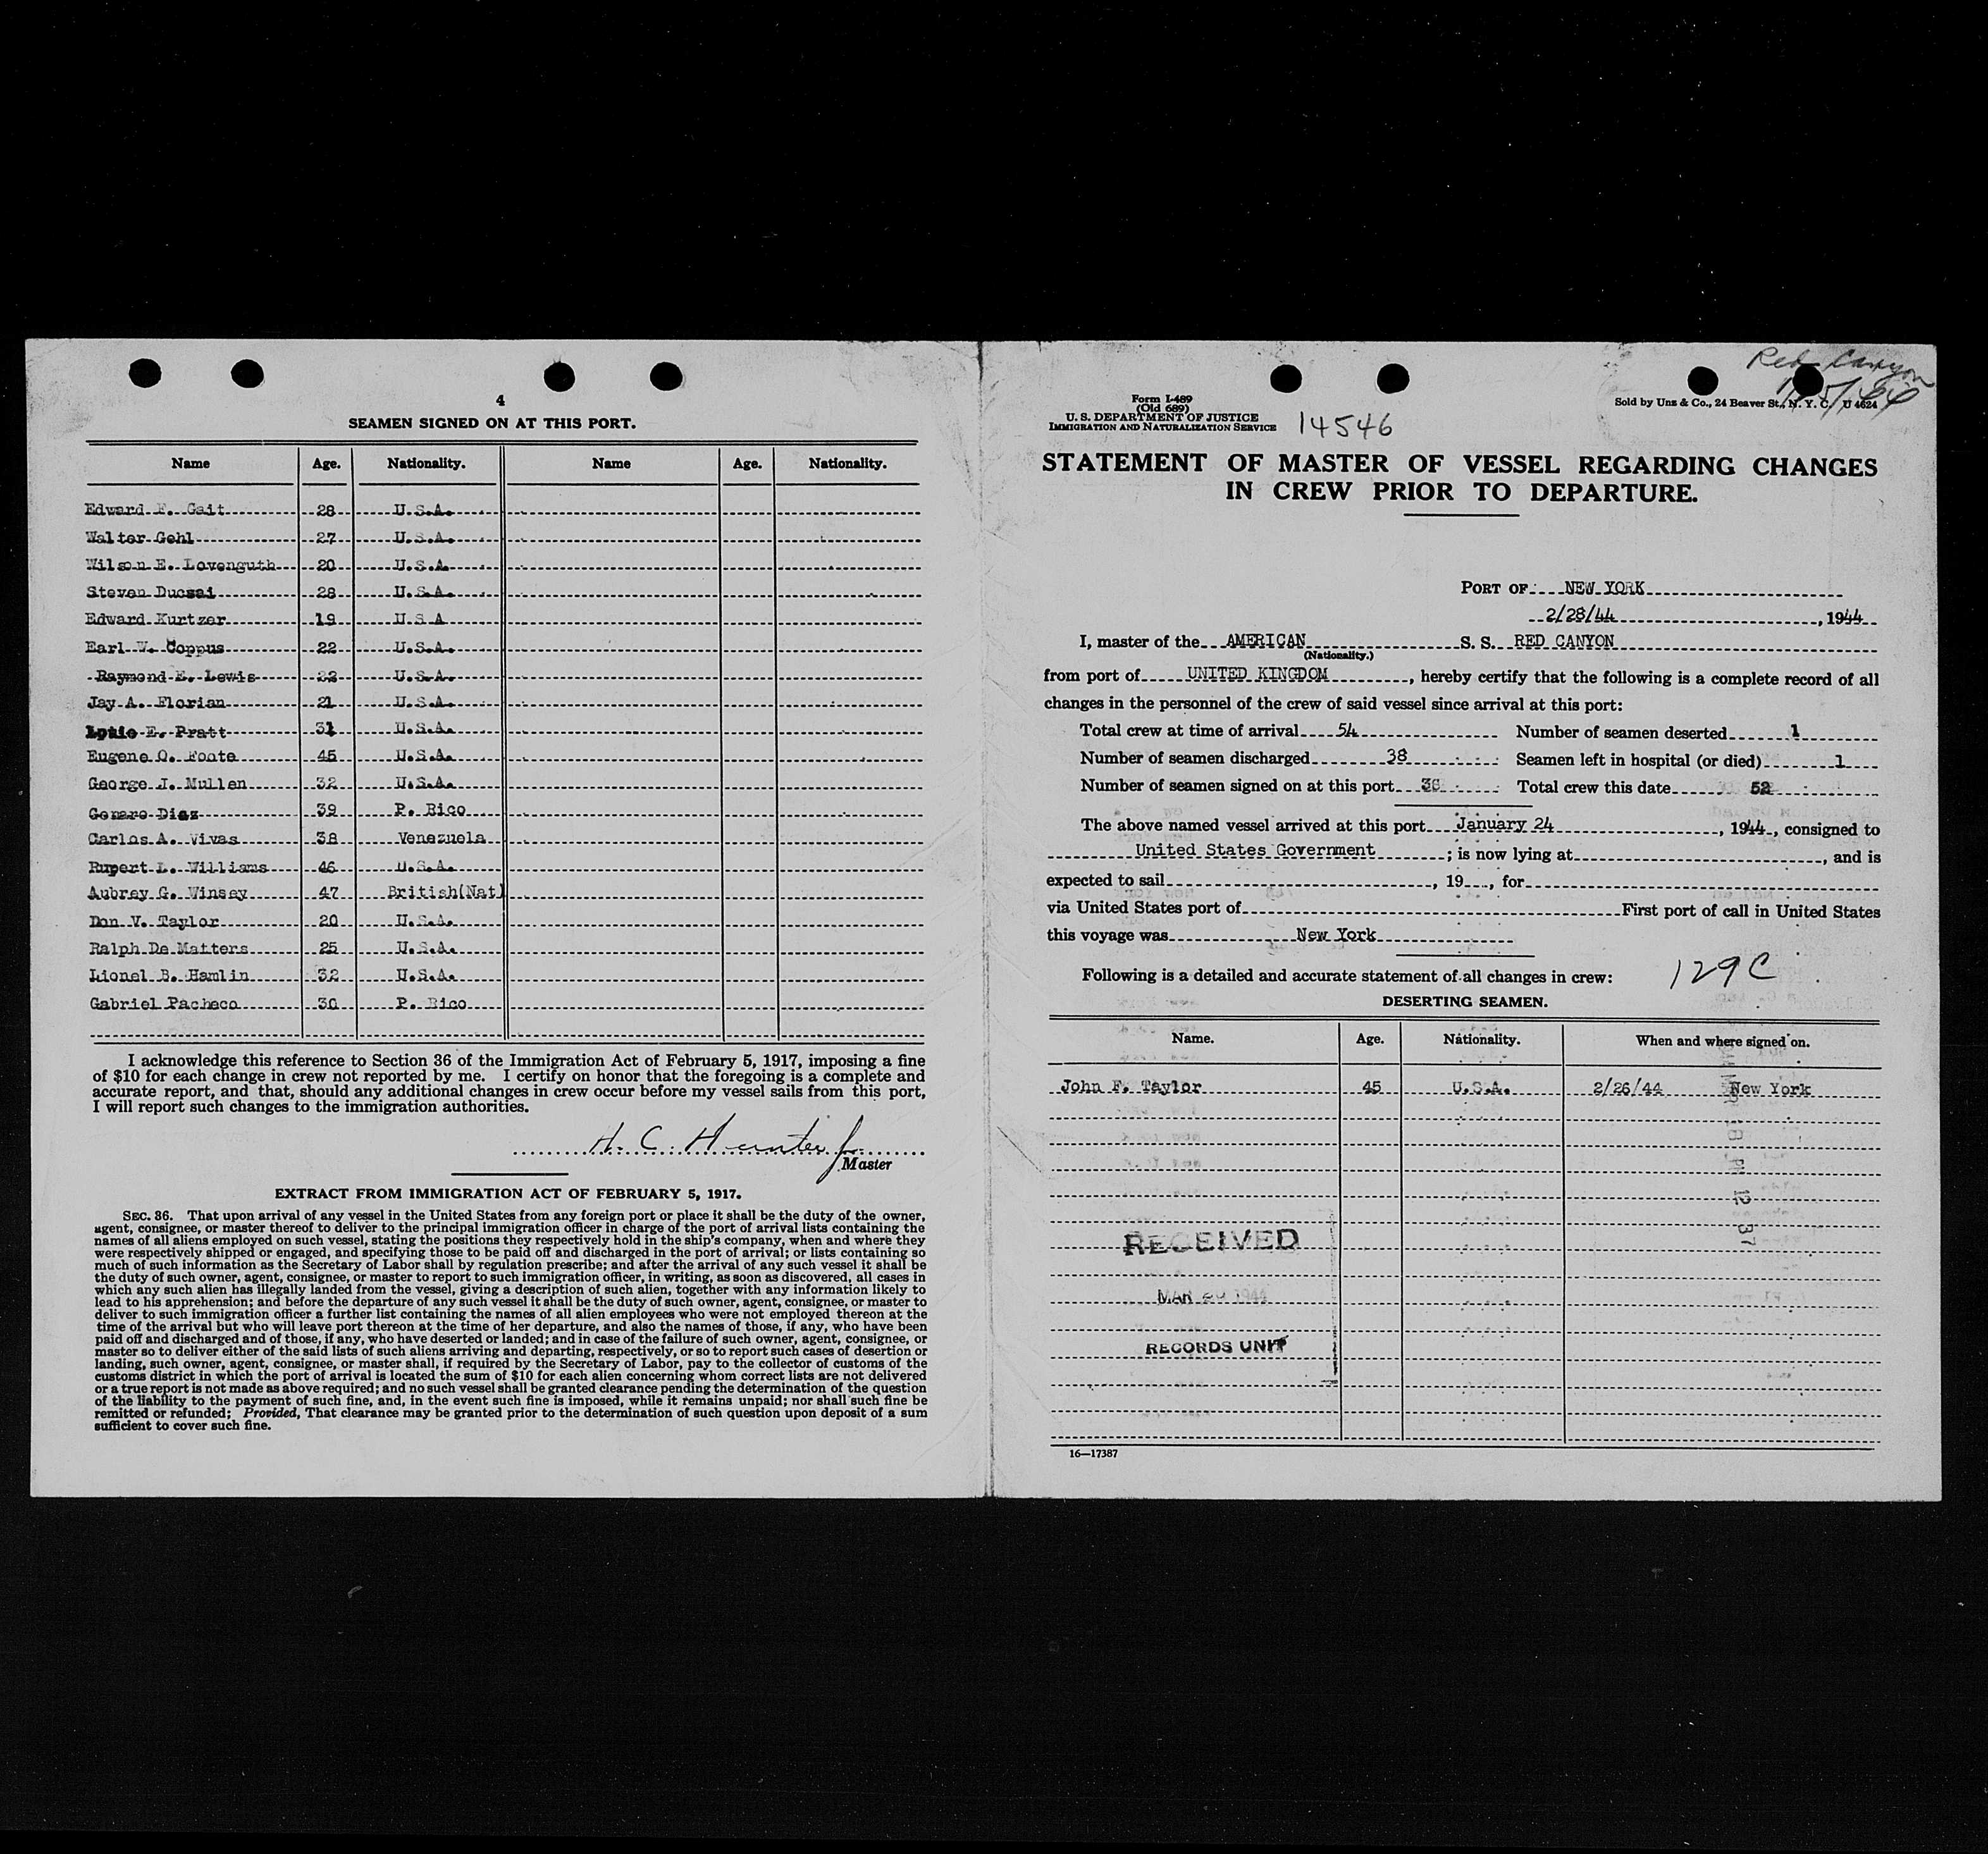 4
SEAMEN SIGNED ON AT THIS PORT.
Name Age. Nationality. Name Age. Nationality.
Edward F. Gait 28 U.S.A.
Walter Gehl 27 U.S.A.
Wilson E. Lovenguth 20 U.S.A.
Steven Ducsai 28 U.S.A.
Edward Kurtzer 19 U.S.A
Earl W. Coppus 22 U.S.A.
Raymond E. Lewis 22 U.S.A.
Jay A. Florian 21 U.S.A.
E. Pratt 31 U.S.A.
Eugene O. Foote 45 U.S.A.
George J. Mullen 32 U.S.A.
Genaro Diaz 39 P. Rico
Carlos A. Vivas 38 Venezuela
Rupert L. Williams 46 U.S.A.
Aubrey G. Winsey 47 British(Nat)
Don V. Taylor 20 U.S.A.
Ralph De Matters 25 U.S.A.
Lionel B. Hamlin 32 U.S.A.
Gabriel Pacheco 30 P. Rico
I acknowledge this reference to Section 36 of the Immigration Act of February 5, 1917, imposing a fine
of $10 for each change in crew not reported by me. I certify on honor that the foregoing is a complete and
accurate report, and that, should any additional changes in crew occur before my vessel sails from this port,
I will report such changes to the immigration authorities.
H. C. Hunter Jr.
Master
EXTRACT FROM IMMIGRATION ACT OF FEBRUARY 5, 1917.
SEC. 36. That upon arrival of any vessel in the United States from any foreign port or place it shall be the duty of the owner,
agent, consignee, or master thereof to deliver to the principal immigration officer in charge of the port of arrival lists containing the
names of all aliens employed on such vessel, stating the positions they respectively hold in the ship's company, when and where they
were respectively shipped or engaged, and specifying those to be paid off and discharged in the port of arrival; or lists containing so
much of such information as the Secretary of Labor shall by regulation prescribe; and after the arrival of any such vessel it shall be
the duty of such owner, agent, consignee, or master to report to such immigration officer, in writing, as soon as discovered, all cases in
which any such alien has illegally landed from the vessel, giving a description of such alien, together with any information likely to
lead to his apprehension; and before the departure of any such vessel it shall be the duty of such owner, agent, consignee, or master to
deliver to such immigration officer a further list containing the names of all alien employees who were not employed thereon at the
time of the arrival but who will leave port thereon at the time of her departure, and also the names of those, if any, who have been
paid off and discharged and of those, if any, who have deserted or landed; and in case of the failure of such owner, agent, consignee, or
master so to deliver either of the said lists of such aliens arriving and departing, respectively, or so to report such cases of desertion or
landing, such owner, agent, consignee, or master shall, if required by the Secretary of Labor, pay to the collector of customs of the
customs district in which the port of arrival is located the sum of $10 for each alien concerning whom correct lists are not delivered
or a true report is not made as above required; and no such vessel shall be granted clearance pending the determination of the question
of the liability to the payment of such fine, and, in the event such fine is imposed, while it remains unpaid; nor shall such fine be
remitted or refunded; Provided, That clearance may be granted prior to the determination of such question upon deposit of a sum
sufficient to cover such fine.
Red Canyon
Form I-489
(Old 689)
U. S. DEPARTMENT OF JUSTICE
IMMIGRATION AND NATURALIZATION SERVICE
14546
Sold by Unz & Co., 24 Beaver St., N. Y. C. U 4624
STATEMENT OF MASTER OF VESSEL REGARDING CHANGES
IN CREW PRIOR TO DEPARTURE.
PORT OF NEW YORK
2/28/44, 1944
I, master of the AMERICAN S. S. RED CANYON
(Nationality.)
from port of UNITED KINGDOM, hereby certify that the following is a complete record of all
changes in the personnel of the crew of said vessel since arrival at this port:
Total crew at time of arrival 54 Number of seamen deserted 1
Number of seamen discharged 38 Seamen left in hospital (or died) 1
Number of seamen signed on at this port 38 Total crew this date 52
The above named vessel arrived at this port January 24, 1944, consigned to
United States Government; is now lying at, and is
expected to sail, 19, for
via United States port of First port of call in United States
this voyage was New York
Following is a detailed and accurate statement of all changes in crew: 129C
DESERTING SEAMEN.
Name. Age. Nationality. When and where signed on.
John F. Taylor 45 U.S.A. 2/26/44 New York
RECEIVED
MAR 20 1944
RECORDS UNIT
PM 12 37
16—17387